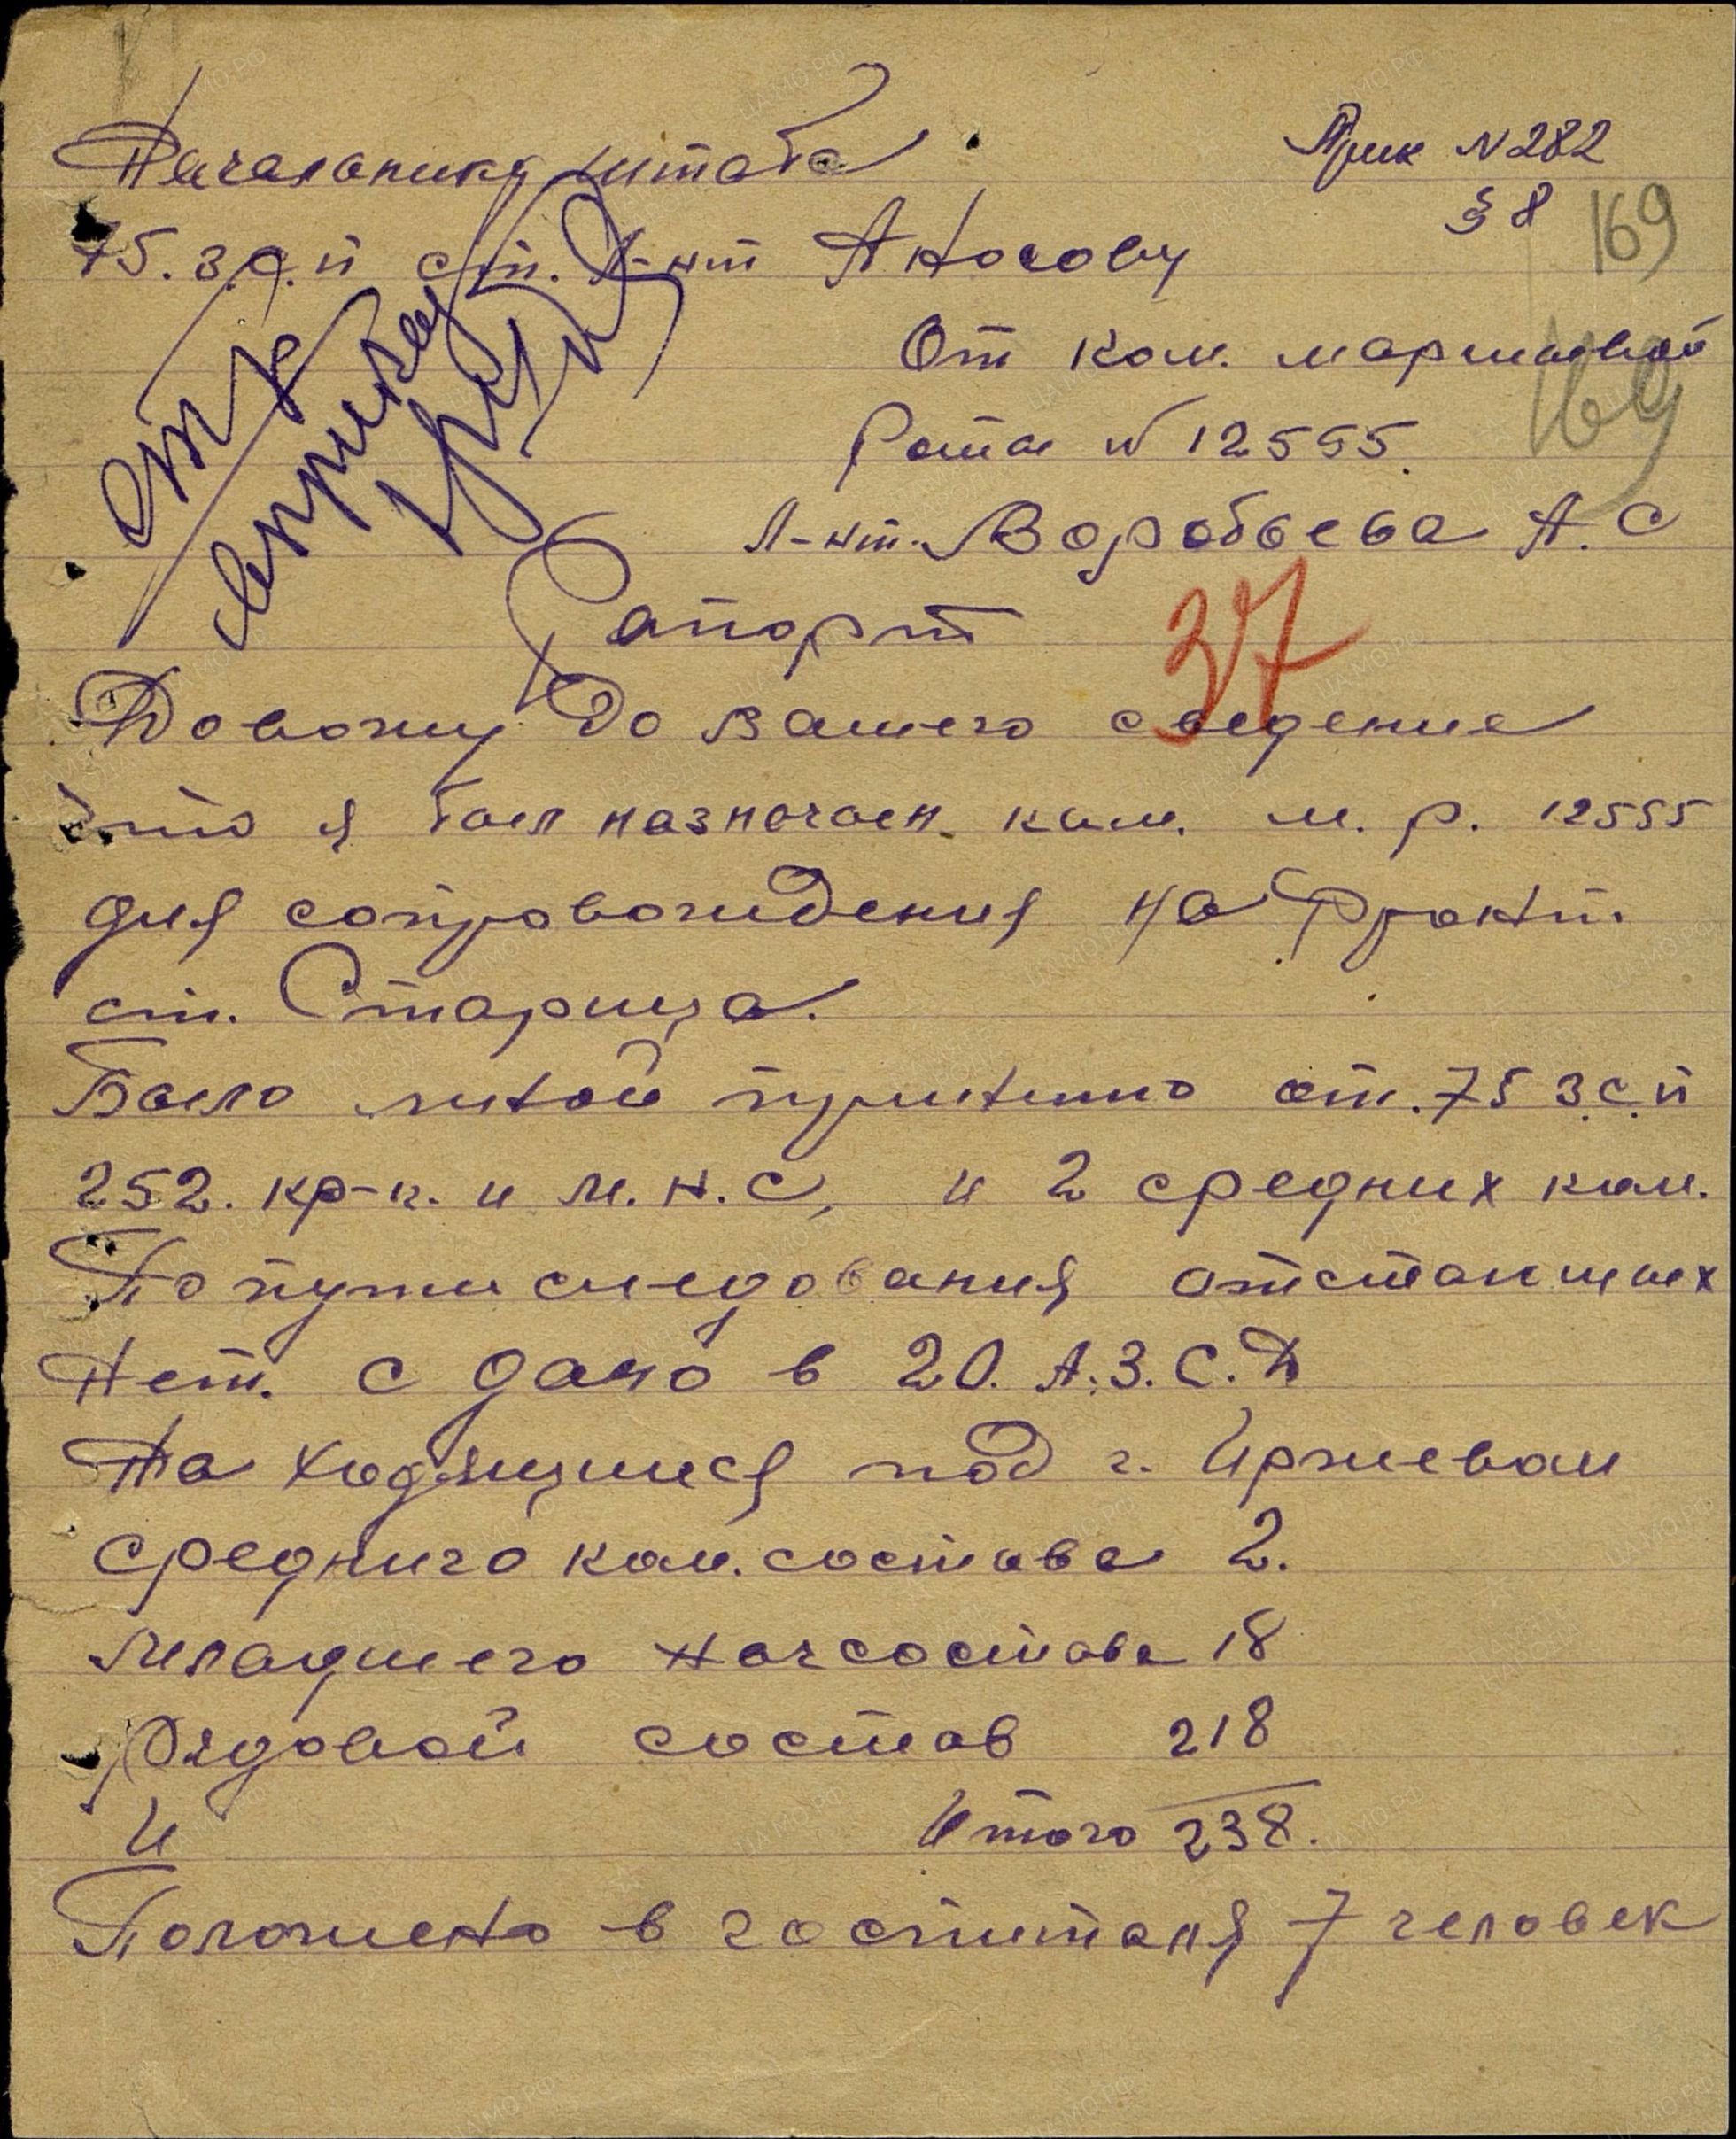 Начальнику штаба
Прик N 282
§ 8
169
75. з.с.п ст. л-нт Аносову
От ком. маршевой
169
Роты N 12555.
Л-нт. Воробьева А. С
Рапорт
37
Довожу до вашего сведение
что я был назначен ком. м. р. 12555
для сопровождения на фронт
ст. Старица.
Было мной принято от. 75 з.с.п
252. кр-ц. и м.н.с, и 2 средних ком.
По пути следования отставших
Нет. сдано в 20. А.З.С.Д
На ходящийся под г. Иржевом
среднего ком. состава 2.
младшего начсостава 18
Рядовой состав 218
И Итого 238.
Положено в госпиталя 7 человек